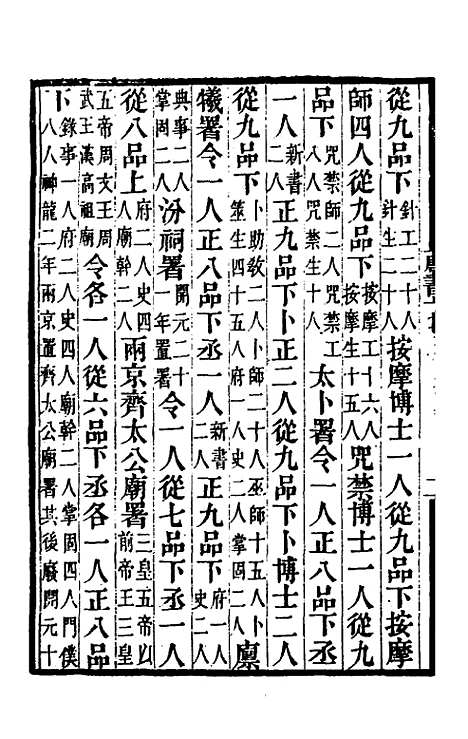 從九品下針工二十人針生二十人按摩博士一人從九品下按摩
師四人從九品下按摩工十六人按摩生十五人咒禁博士一人從九
品下咒禁師二人咒禁工八人咒禁生十人太卜署令一人正八品下丞
一人新書二人正九品下卜正二人從九品下卜博士二人
從九品下卜助敎二人卜師二十人巫師十五人卜筮生四十五人府一人史二人掌固二人廩
犧署令一人正八品下丞一人新書二人正九品下府一人史二人
典事二人掌固二人汾祠署開元二十一年置署令一人從七品下丞一人
從八品上府二人史四人廟幹二人兩京齊太公廟署三皇五帝以前帝王三皇
五帝周文王周武王漢高祖廟令各一人從六品下丞各一人正八品
下錄事一人府二人史四人廟幹二人掌固四人門僕八人神龍二年兩京置齊太公廟署其後廢開元十